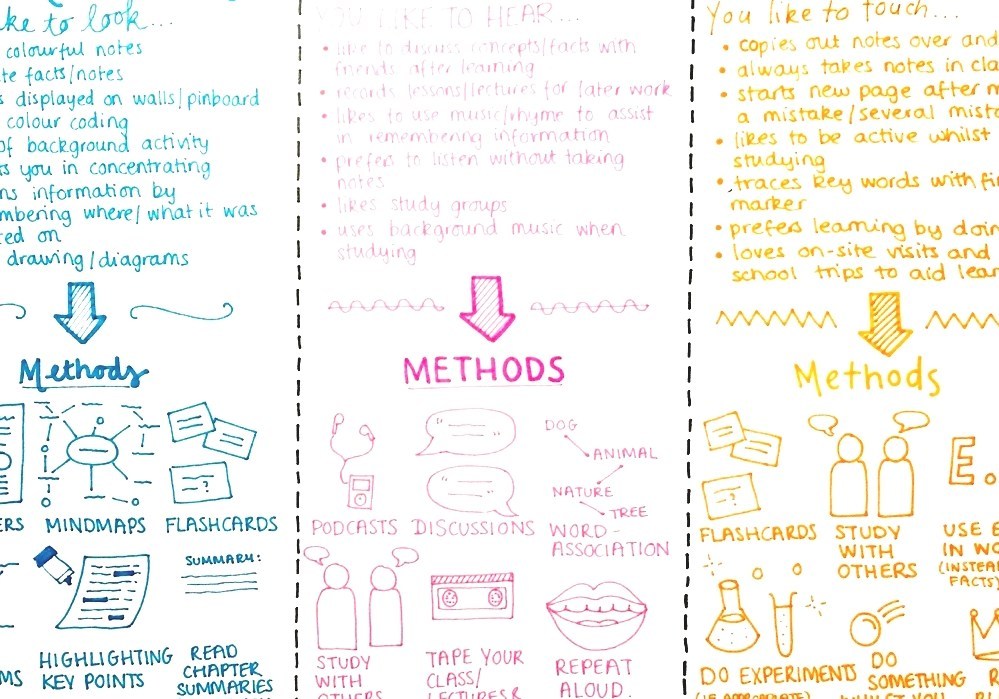 ke to look...
colourful notes
te facts/notes
s displayed on walls/pinboard
colour coding
of background activity
s you in concentrating
ns information by
mbering where/what it was
ed on
drawing/diagrams
Methods
ERS
MINDMAPS
FLASHCARDS
?
SUMMARY:
MS
HIGHLIGHTING
KEY POINTS
READ
CHAPTER
SUMMARIES
YOU LIKE TO HEAR...
• like to discuss concepts/facts with
friends after learning
• records lessons/lectures for later work
• likes to use music/rhyme to assist
in remembering information
• prefers to listen without taking
notes
• likes study groups
• uses background music when
studying
METHODS
DOG
ANIMAL
NATURE
TREE
PODCASTS
DISCUSSIONS
WORD-
ASSOCIATION
STUDY
WITH
OTHERS
TAPE YOUR
CLASS/
LECTURES &
REPEAT
ALOUD.
You like to touch...
• copies out notes over and
• always takes notes in cla
• starts new page after m
a mistake/several mista
• likes to be active whilst
studying
• traces key words with fi
marker
• prefers learning by doin
• loves on-site visits and
school trips to aid lear
Methods
?
E.
FLASHCARDS
STUDY
WITH
OTHERS
USE E
IN WO
(INSTEA
FACTS)
DO EXPERIMENTS
(IF APPROPRIATE)
DO
SOMETHING
R